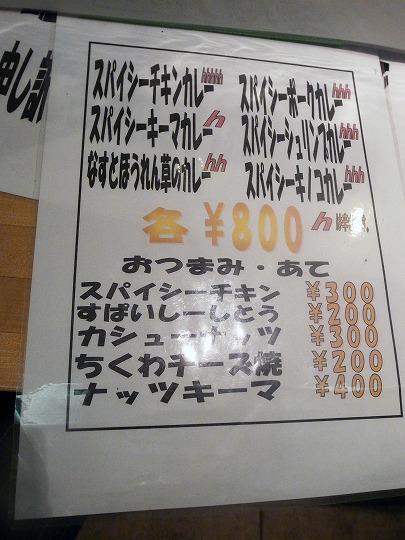 申し訳
スパイシーチキンカレー hhhhh
スパイシーポークカレー hhh
スパイシーキーマカレー h
スパイシーシュリンプカレー hhh
なすとほうれん草のカレー hh
スパイシーキノコカレー hhh
各 ¥800
h
おつまみ・あて
スパイシーチキン ¥300
すぱいしーしとう ¥200
カシューナッツ ¥300
ちくわチーズ焼 ¥200
ナッツキーマ ¥400